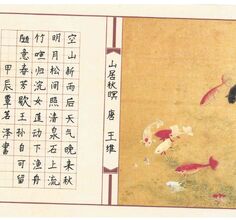 山居秋暝 唐 王维
空山新雨后天气晚来秋
明月松间照清泉石上流
竹喧归浣女莲动下渔舟
随意春芳歇王孙自可留
甲辰覃若泽书